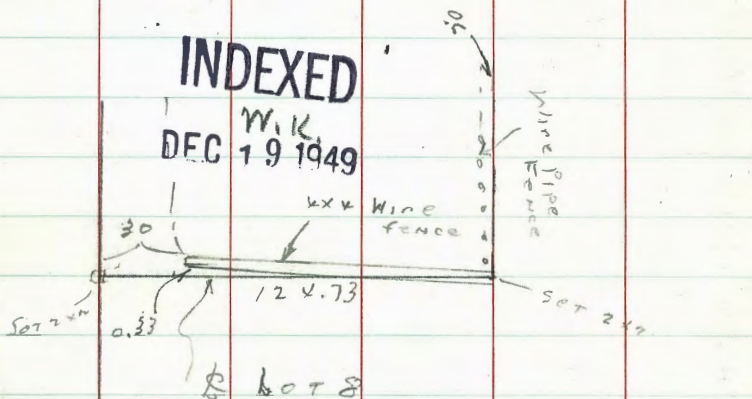 INDEXED
W.K.
DEC 19 1949
Wire Pipe
Fence
xxx Wire
fence
30
124.73
Set 2x2
Set 2x2
0.33
LOT 8